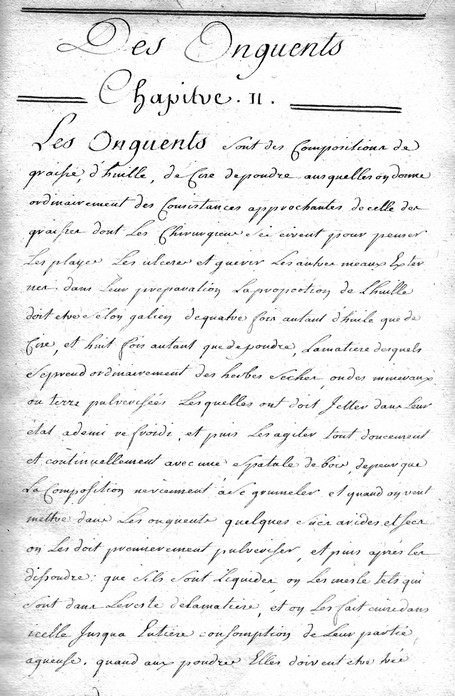 Des Onguents
Chapitre. II.
Les Onguents sont des Compositions de
graisse, d'huille, de Cire de poudre ausquelles on donne
ordinairement des Consistances approchantes de celle des
graisses dont Les Chirurgiens se servent pour penser
Les playes Les ulceres et guerir Les autres meaux Exter
nes: dans Leur preparation La proportion de L'huille
doit etre selon galien de quatre fois autant d'huile que de
Cire, et huit fois autant que de poudre, La matiere desquels
se prend ordinairement des herbes seches ou des mineraux
ou terre pulverisées Lesquelles ont doit Jetter dans Leur
état a demi refroidi, et puis Les agiter tout doucement
et continuellement avec une espatule de bois, de peur que
La Composition ne viennent à se grumeler et quand on veut
mettre dans Les onguents quelques sucs arides et secs
on Les doit premierement pulveriser, et puis apres les
dissoudre: que s'ils sont Liquides, on Les mesle tels qui
sont dans Le reste de la matiere, et on Les fait cuire dans
icelle Jusqua Entiere consomption de Leur partie
aqueuse. quand aux poudre Elles doivent etre